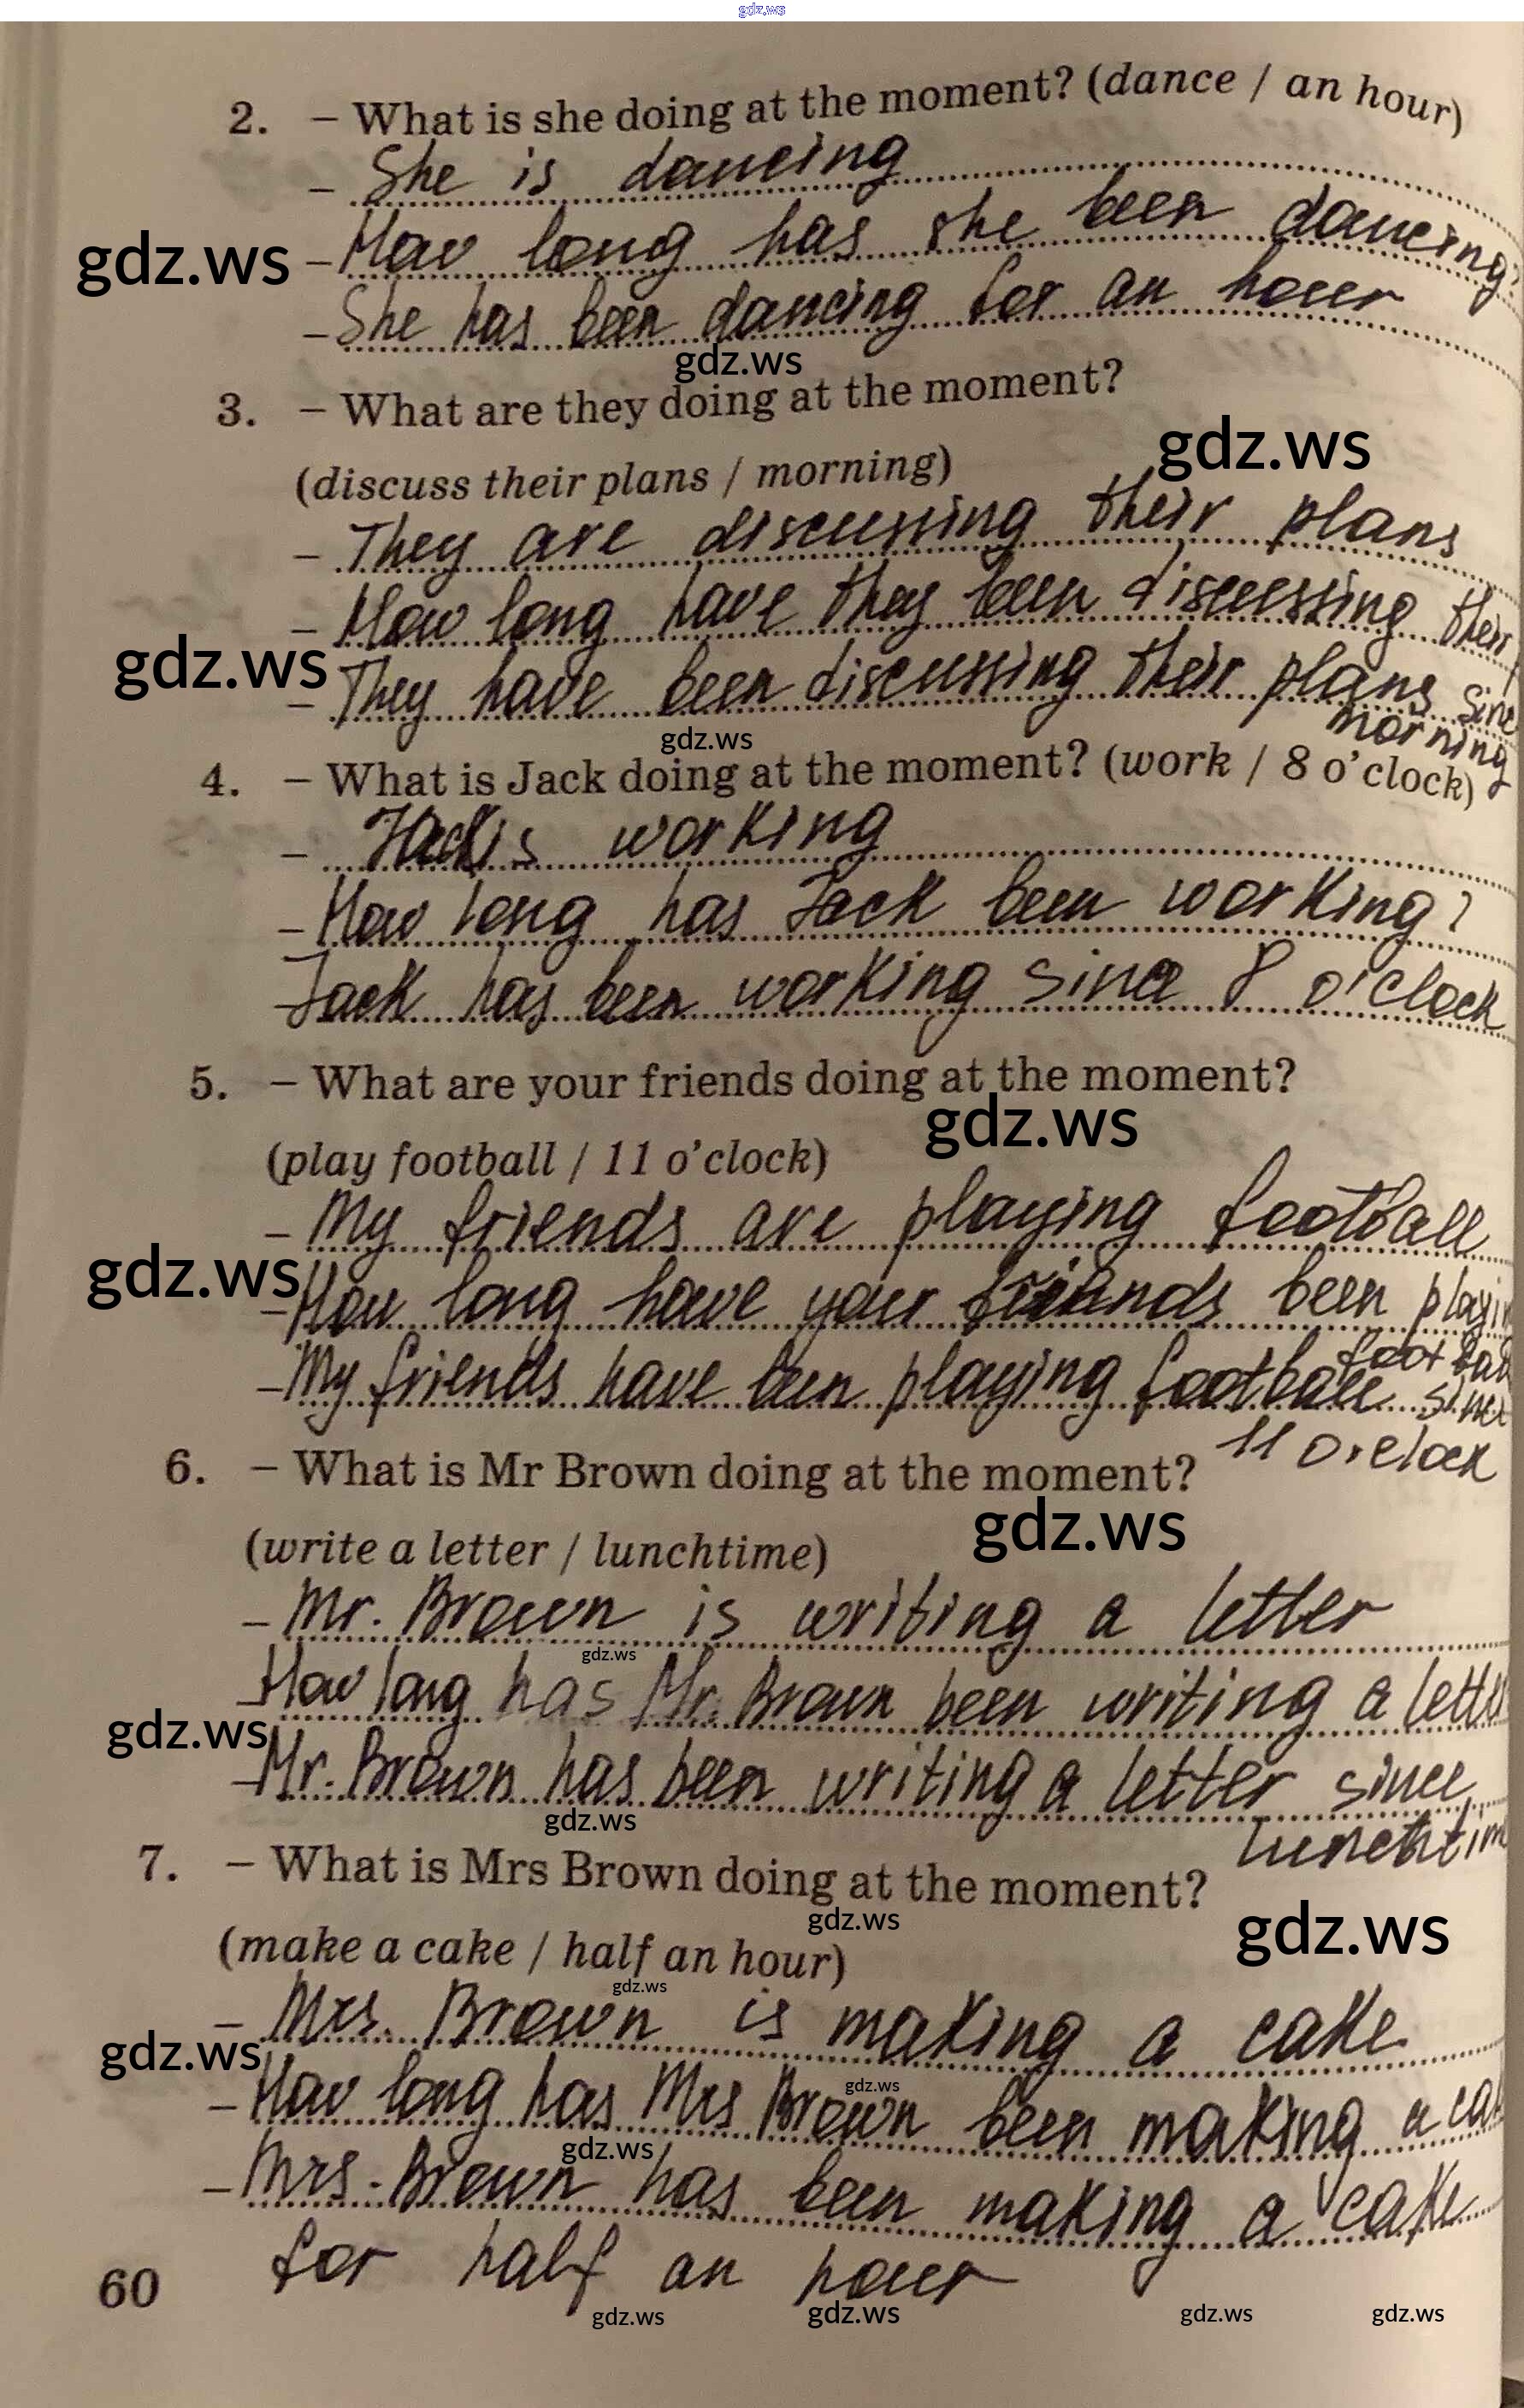 gdz.ws
2. – What is she doing at the moment? (dance / an hour)
– She is dancing
– How long has she been dancing?
gdz.ws
– She has been dancing for an hour
gdz.ws
3. – What are they doing at the moment?
gdz.ws
(discuss their plans / morning)
– They are discussing their plans
– How long have they been discussing their
gdz.ws
– They have been discussing their plans sinc
morning
gdz.ws
4. – What is Jack doing at the moment? (work / 8 o'clock)
– Jack is working
– How long has Jack been working?
– Jack has been working since 8 o'clock
5. – What are your friends doing at the moment?
gdz.ws
(play football / 11 o'clock)
– My friends are playing football
gdz.ws
– How long have your friends been playin
football
– My friends have been playing football since
11 o'clock
6. – What is Mr Brown doing at the moment?
gdz.ws
(write a letter / lunchtime)
– Mr. Brown is writing a letter
gdz.ws
– How long has Mr. Brown been writing a letter
gdz.ws
– Mr. Brown has been writing a letter since
lunchtim
gdz.ws
7. – What is Mrs Brown doing at the moment?
gdz.ws
gdz.ws
(make a cake / half an hour)
gdz.ws
– Mrs. Brown is making a cake
gdz.ws
gdz.ws
– How long has Mrs Brown been making a cak
gdz.ws
– Mrs. Brown has been making a cake
for half an hour
60
gdz.ws gdz.ws gdz.ws gdz.ws